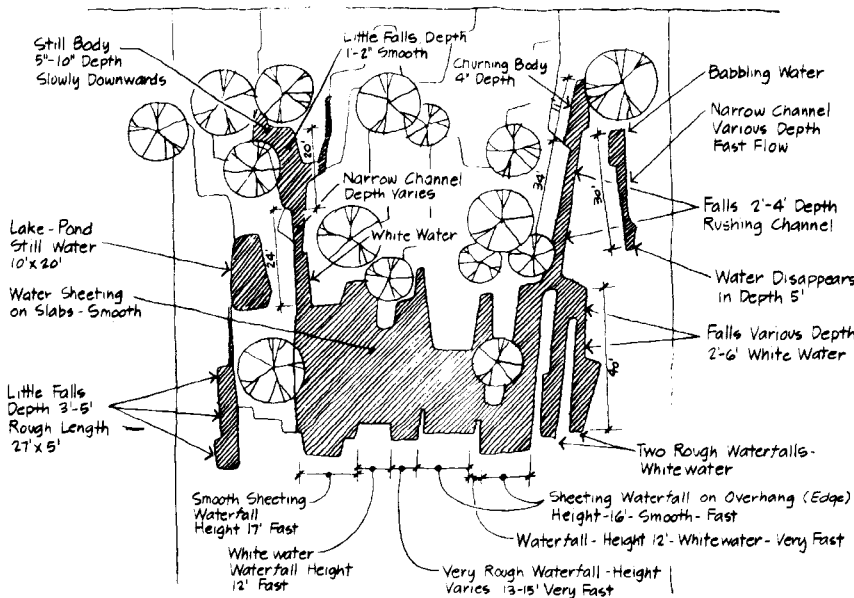 Still Body
5"-10" Depth
Slowly Downwards
Little Falls, Depth
1'-2" Smooth
Churning Body
4" Depth
Babbling Water
Narrow Channel
Various Depth
Fast Flow
11'
20'
34'
30'
Narrow Channel
Depth Varies
White Water
Falls 2'-4' Depth
Rushing Channel
Lake-Pond
Still Water
10'x20'
24'
Water Sheeting
on Slabs-Smooth
Water Disappears
in Depth 5'
Falls Various Depth
2'-6' White Water
40'
Little Falls
Depth 3'-5'
Rough Length
27'x5'
Two Rough Waterfalls-
Whitewater
Smooth Sheeting
Waterfall
Height 17' Fast
Sheeting Waterfall on Overhang (Edge)
Height-16'-Smooth-Fast
Waterfall-Height 12'-Whitewater-Very Fast
White water
Waterfall Height
12' Fast
Very Rough Waterfall-Height
Varies 13-15' Very Fast